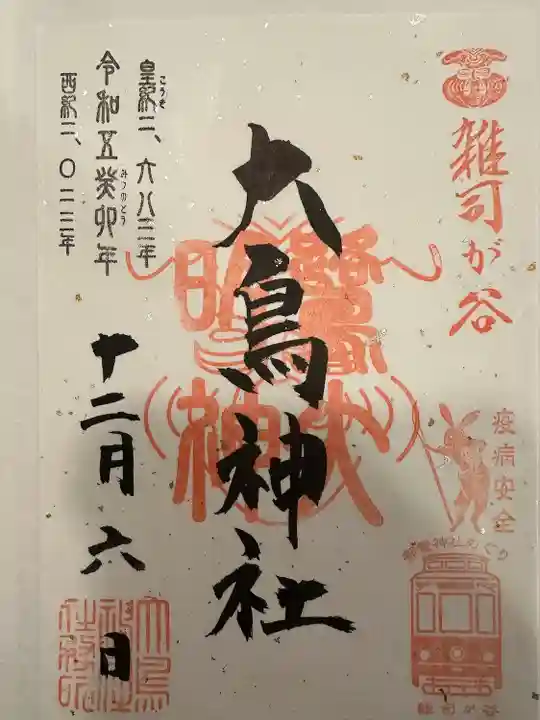 雑司が谷
疫病安全
神社めぐり
雑司が谷
大鳥神社
皇紀二、六八三年
こうき
令和五癸卯年
みつのとう
西紀二、〇二三年
十二月六日